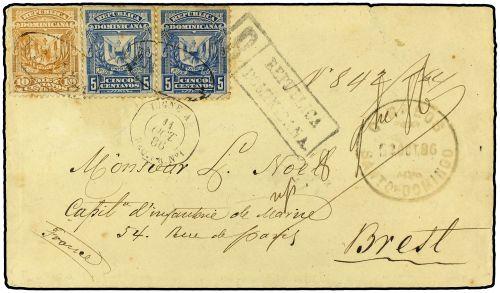 REPUBLICA
DOMINICANA
10 10
REPUBLICA
DOMINICANA
5 CINCO 5
CENTAVOS
REPUBLICA
DOMINICANA
5 CINCO 5
CENTAVOS
REPUBLICA
DOMINICANA
LIGNE A
11
OCT
86
CORREOS
OCT 86
SANTO DOMINGO
Monsieur L. Noël
Capit.ne d'infanterie de Marine
54. Rue de Paris
Brest
France